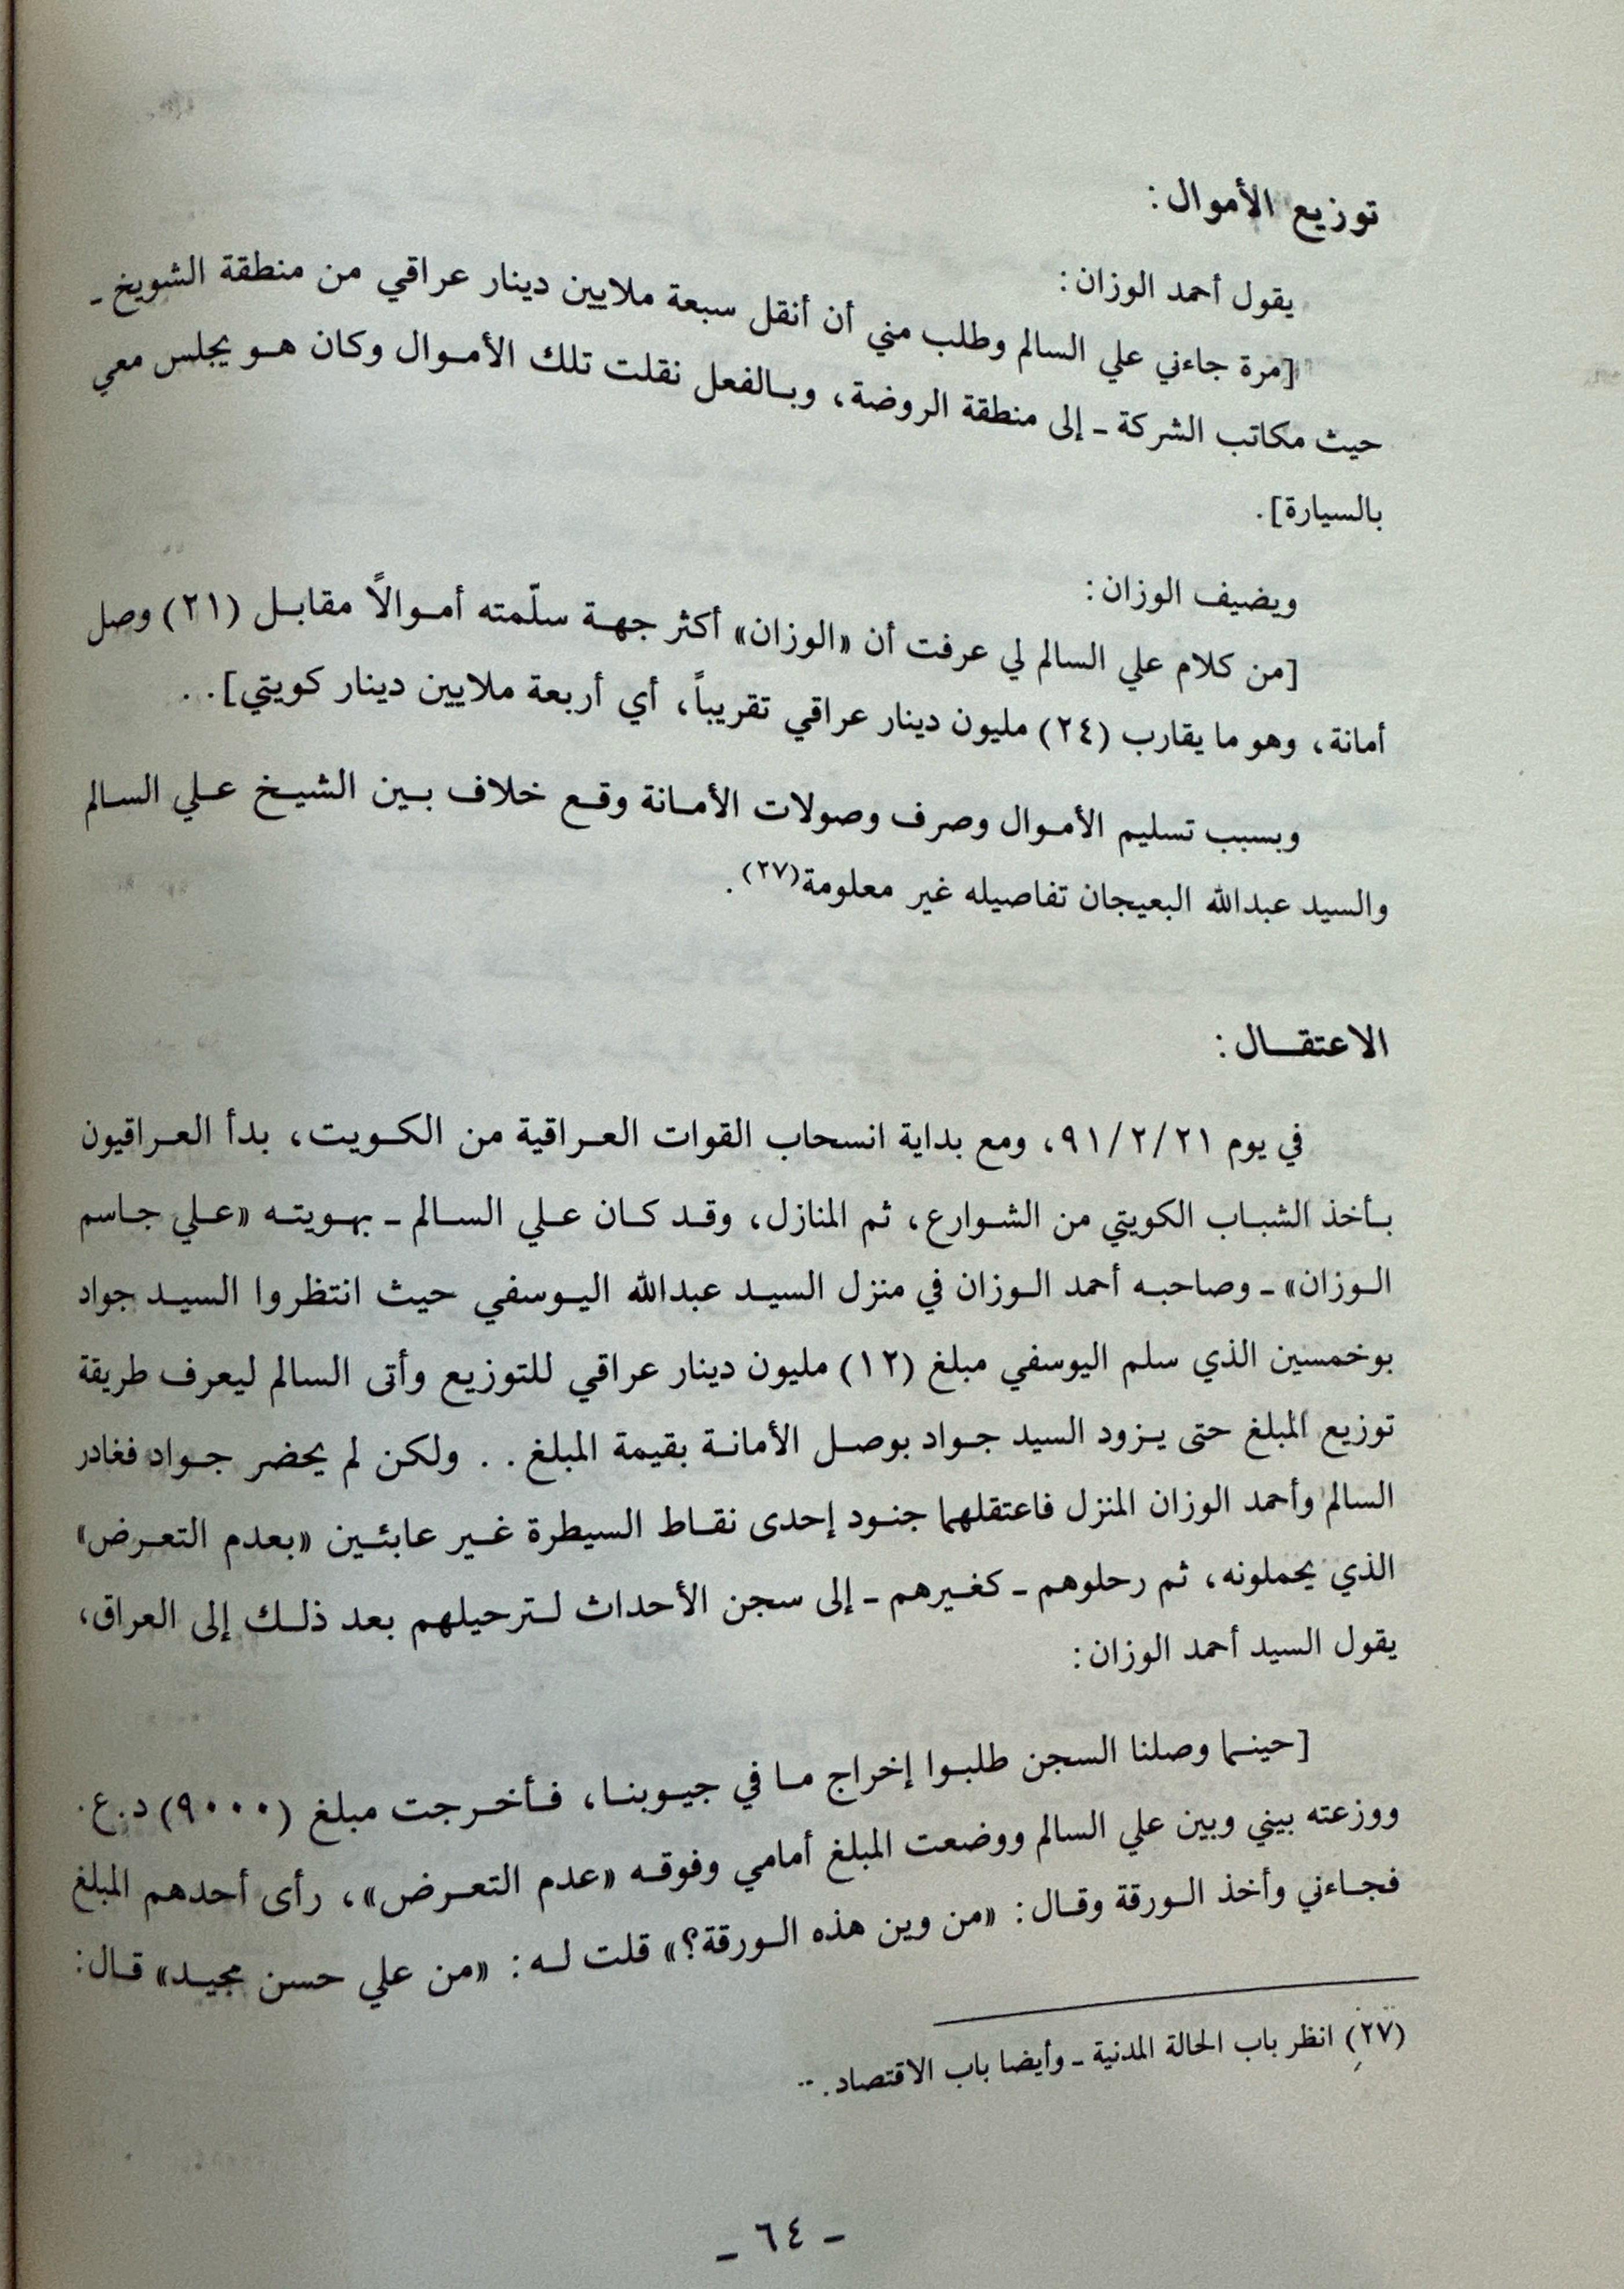 توزيع الأموال:
يقول أحمد الوزان:
[مرة جاءني علي السالم وطلب مني أن أنقل سبعة ملايين دينار عراقي من منطقة الشويخ ـ
حيث مكاتب الشركة ـ إلى منطقة الروضة، وبالفعل نقلت تلك الأموال وكان هو يجلس معي
بالسيارة].
ويضيف الوزان:
[من كلام علي السالم لي عرفت أن «الوزان» أكثر جهة سلّمته أموالاً مقابل (٢١) وصل
أمانة، وهو ما يقارب (٢٤) مليون دينار عراقي تقريباً، أي أربعة ملايين دينار كويتي]..
وبسبب تسليم الأموال وصرف وصولات الأمانة وقع خلاف بين الشيخ علي السالم
والسيد عبدالله البعيجان تفاصيله غير معلومة(٢٧).
الاعتقال:
في يوم ٩١/٢/٢١، ومع بداية انسحاب القوات العراقية من الكويت، بدأ العراقيون
بأخذ الشباب الكويتي من الشوارع، ثم المنازل، وقد كان علي السالم ـ بهويته «علي جاسم
الوزان» ـ وصاحبه أحمد الوزان في منزل السيد عبدالله اليوسفي حيث انتظروا السيد جواد
بوخمسين الذي سلم اليوسفي مبلغ (١٢) مليون دينار عراقي للتوزيع وأتى السالم ليعرف طريقة
توزيع المبلغ حتى يزود السيد جواد بوصل الأمانة بقيمة المبلغ.. ولكن لم يحضر جواد فغادر
السالم وأحمد الوزان المنزل فاعتقلهما جنود إحدى نقاط السيطرة غير عابئين «بعدم التعرض»
الذي يحملونه، ثم رحلوهم ـ كغيرهم ـ إلى سجن الأحداث لترحيلهم بعد ذلك إلى العراق،
يقول السيد أحمد الوزان:
[حينما وصلنا السجن طلبوا إخراج ما في جيوبنا، فأخرجت مبلغ (٩٠٠٠) د.ع.
ووزعته بيني وبين علي السالم ووضعت المبلغ أمامي وفوقه «عدم التعرض»، رأى أحدهم المبلغ
فجاءني وأخذ الورقة وقال: «من وين هذه الورقة؟» قلت له: «من علي حسن مجيد» قال:
(٢٧) انظر باب الحالة المدنية ـ وأيضا باب الاقتصاد...
ـ ٦٤ ـ